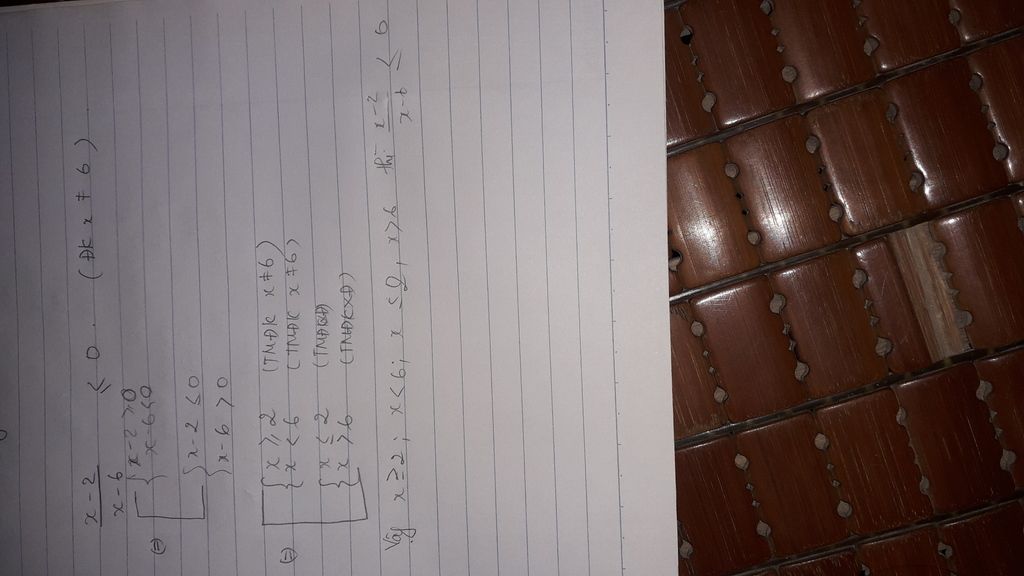 x-2 / x-6 ≤ 0. (ĐK x ≠ 6)
(=) [ { x-2 ≥ 0
x-6 < 0
{ x-2 ≤ 0
x-6 > 0
(=) [ { x ≥ 2 (TMĐK x ≠ 6)
x < 6 (TMĐK x ≠ 6)
{ x ≤ 2 (TMĐKXĐ)
x > 6 (TMĐKXĐ)
Vậy x ≥ 2; x < 6; x ≤ 2, x > 6 thì x-2 / x-6 ≤ 0